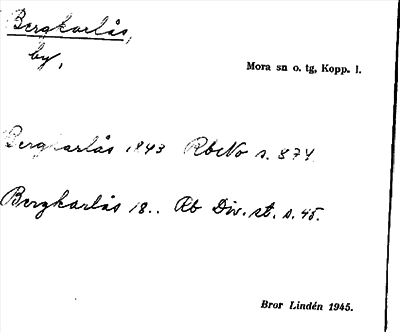 Bergkarlås,
by,
Mora sn o. tg, Kopp. l.
Bergkarlås 1843 RbNo s. 874.
Bergkarlås 18.. Rb Div. st. s. 45.
Bror Lindén 1945.